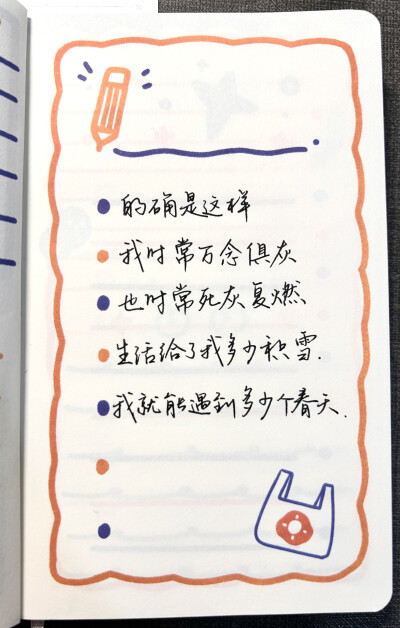 的确是这样
我时常万念俱灰
也时常死灰复燃
生活给了我多少积雪.
我就能遇到多少个春天.